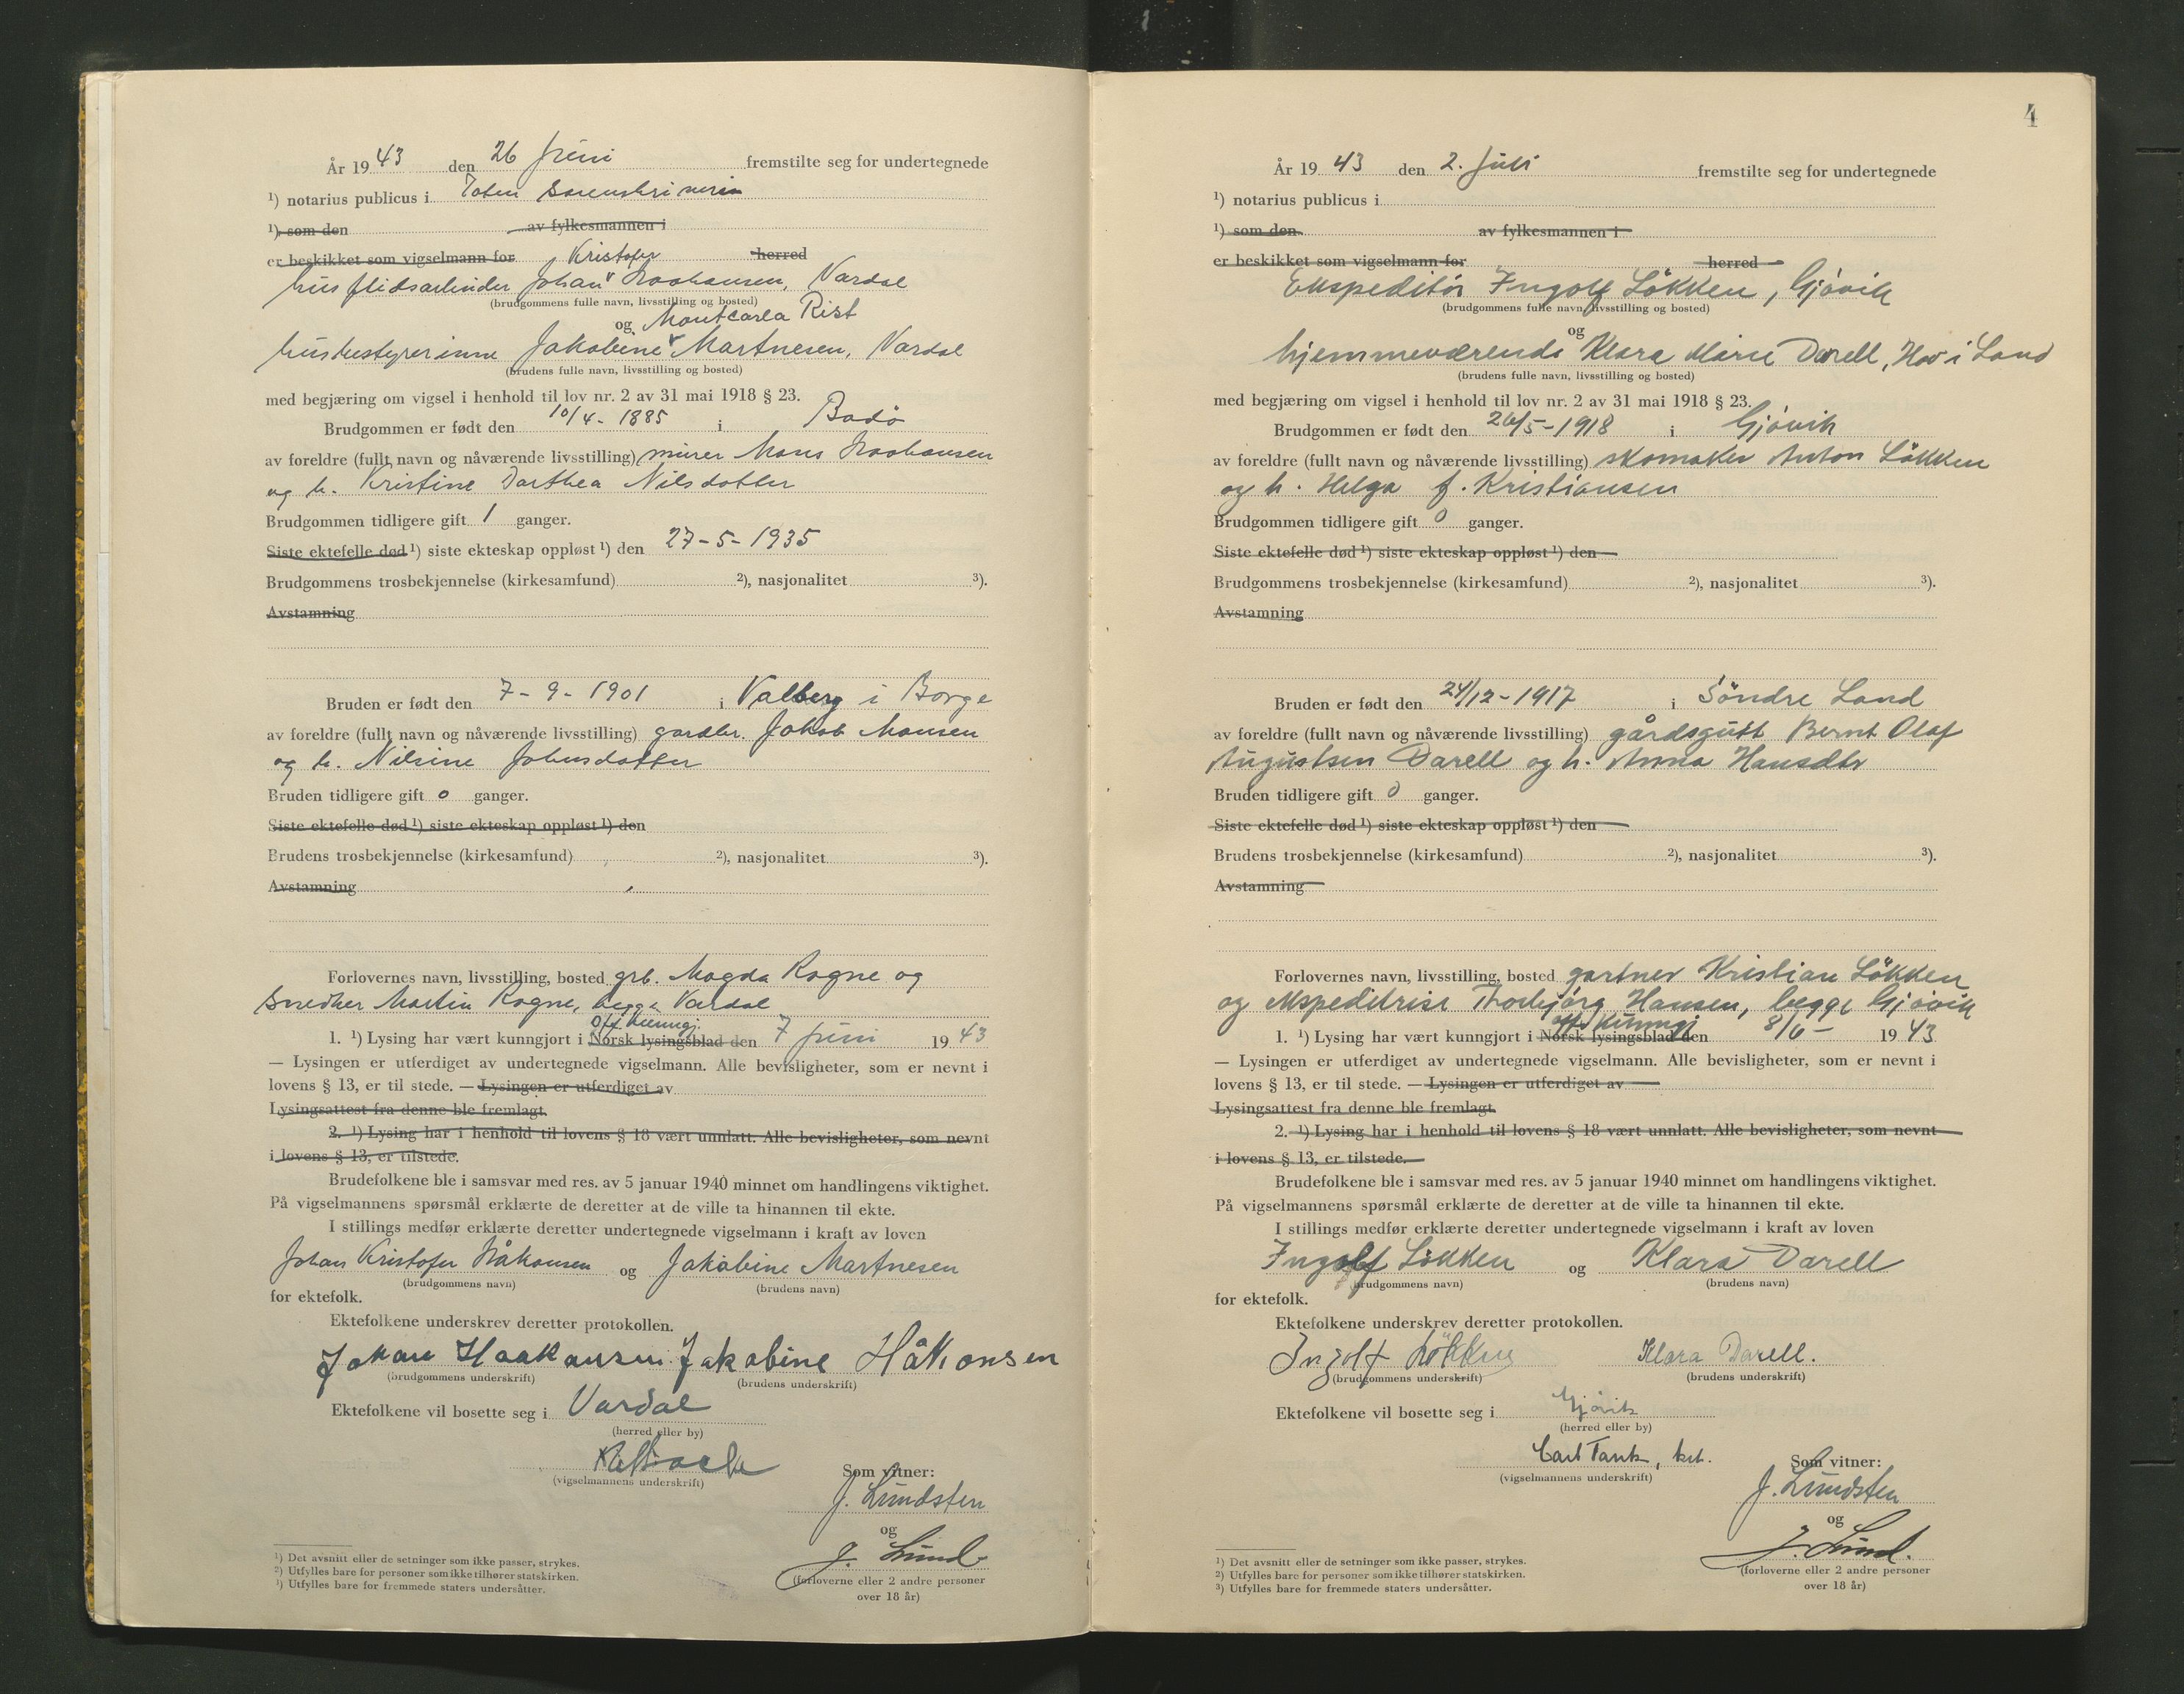 År 1943 den 26 juni fremstilte seg for undertegnede
¹) notarius publicus i Toten sorenskriveri
¹) som den av fylkesmannen i
er beskikket som vigselmann for herred
Kristofer
husflidsarbeider Johan Haakansen, Vardal
(brudgommens fulle navn, livsstilling og bosted)
og Montcarla Rist
husbestyrerinne Jakobine Martnesen, Vardal
(brudens fulle navn, livsstilling og bosted)
med begjæring om vigsel i henhold til lov nr. 2 av 31 mai 1918 § 23.
Brudgommen er født den 10/4 - 1885 i Bodö
av foreldre (fullt navn og nåværende livsstilling) murer Mons Haakansen
og h. Kristine Darthea Nilsdotter
Brudgommen tidligere gift 1 ganger.
Siste ektefelle død ¹) siste ekteskap oppløst ¹) den 27-5-1935
Brudgommens trosbekjennelse (kirkesamfund) ²), nasjonalitet ³).
Avstamning
Bruden er født den 7-9-1901 i Valberg i Borge
av foreldre (fullt navn og nåværende livsstilling) gardbr. Jakob Monsen
og h. Nilsine Johnsdotter
Bruden tidligere gift 0 ganger.
Siste ektefelle død ¹) siste ekteskap oppløst ¹) den
Brudens trosbekjennelse (kirkesamfund) ²), nasjonalitet ³).
Avstamning
Forlovernes navn, livsstilling, bosted grb. Magda Rogne og
snedker Martin Rogne, begge Vardal
Off. kunngj.
1. ¹) Lysing har vært kunngjort i Norsk lysingsblad den 7 juni 1943
— Lysingen er utferdiget av undertegnede vigselmann. Alle bevisligheter, som er nevnt i
lovens § 13, er til stede. — Lysingen er utferdiget av
Lysingsattest fra denne ble fremlagt.
2. ¹) Lysing har i henhold til lovens § 18 vært unnlatt. Alle bevisligheter, som nevnt
i lovens § 13, er tilstede.
Brudefolkene ble i samsvar med res. av 5 januar 1940 minnet om handlingens viktighet.
På vigselmannens spørsmål erklærte de deretter at de ville ta hinannen til ekte.
I stillings medfør erklærte deretter undertegnede vigselmann i kraft av loven
Johan Kristofer Håkansen og Jakobine Martnesen
(brudgommens navn) (brudens navn)
for ektefolk.
Ektefolkene underskrev deretter protokollen.
Johan Haakansen Jakobine Håkonsen
(brudgommens underskrift) (brudens underskrift)
Ektefolkene vil bosette seg i Vardal
(herred eller by)
(vigselmannens underskrift)
Som vitner:
J. Lundsten
og
J. Lund
(forloverne eller 2 andre personer
over 18 år)
¹) Det avsnitt eller de setninger som ikke passer, strykes.
²) Utfylles bare for personer som ikke tilhører statskirken.
³) Utfylles bare for fremmede staters undersåtter.
4
År 1943 den 2. juli fremstilte seg for undertegnede
¹) notarius publicus i
¹) som den av fylkesmannen i
er beskikket som vigselmann for herred
Ekspeditör Ingolf Lökken, Gjövik
(brudgommens fulle navn, livsstilling og bosted)
og
hjemmeværende Klara Marie Darell, Hov i Land
(brudens fulle navn, livsstilling og bosted)
med begjæring om vigsel i henhold til lov nr. 2 av 31 mai 1918 § 23.
Brudgommen er født den 26/5-1918 i Gjövik
av foreldre (fullt navn og nåværende livsstilling) skomaker Anton Lökken
og h. Helga f. Kristiansen
Brudgommen tidligere gift 0 ganger.
Siste ektefelle død ¹) siste ekteskap oppløst ¹) den
Brudgommens trosbekjennelse (kirkesamfund) ²), nasjonalitet ³).
Avstamning
Bruden er født den 24/12-1917 i Söndre Land
av foreldre (fullt navn og nåværende livsstilling) gårdsgutt Bernt Olaf
Augustsen Darell og h. Anna Hansdtr
Bruden tidligere gift 0 ganger.
Siste ektefelle død ¹) siste ekteskap oppløst ¹) den
Brudens trosbekjennelse (kirkesamfund) ²), nasjonalitet ³).
Avstamning
Forlovernes navn, livsstilling, bosted gartner Kristian Lökken
og ekspeditrise Thorbjörg Hansen, begge Gjövik
off. kunngj
1. ¹) Lysing har vært kunngjort i Norsk lysingsblad den 8/6- 1943
— Lysingen er utferdiget av undertegnede vigselmann. Alle bevisligheter, som er nevnt i
lovens § 13, er til stede. — Lysingen er utferdiget av
Lysingsattest fra denne ble fremlagt.
2. ¹) Lysing har i henhold til lovens § 18 vært unnlatt. Alle bevisligheter, som nevnt
i lovens § 13, er tilstede.
Brudefolkene ble i samsvar med res. av 5 januar 1940 minnet om handlingens viktighet.
På vigselmannens spørsmål erklærte de deretter at de ville ta hinannen til ekte.
I stillings medfør erklærte deretter undertegnede vigselmann i kraft av loven
Ingolf Lökken og Klara Darell
(brudgommens navn) (brudens navn)
for ektefolk.
Ektefolkene underskrev deretter protokollen.
Ingolf Lökken Klara Darell.
(brudgommens underskrift) (brudens underskrift)
Ektefolkene vil bosette seg i Gjövik
(herred eller by)
Carl Tank, kst.
(vigselmannens underskrift)
Som vitner:
J. Lundsten
og
J. Lund.
(forloverne eller 2 andre personer
over 18 år)
¹) Det avsnitt eller de setninger som ikke passer, strykes.
²) Utfylles bare for personer som ikke tilhører statskirken.
³) Utfylles bare for fremmede staters undersåtter.